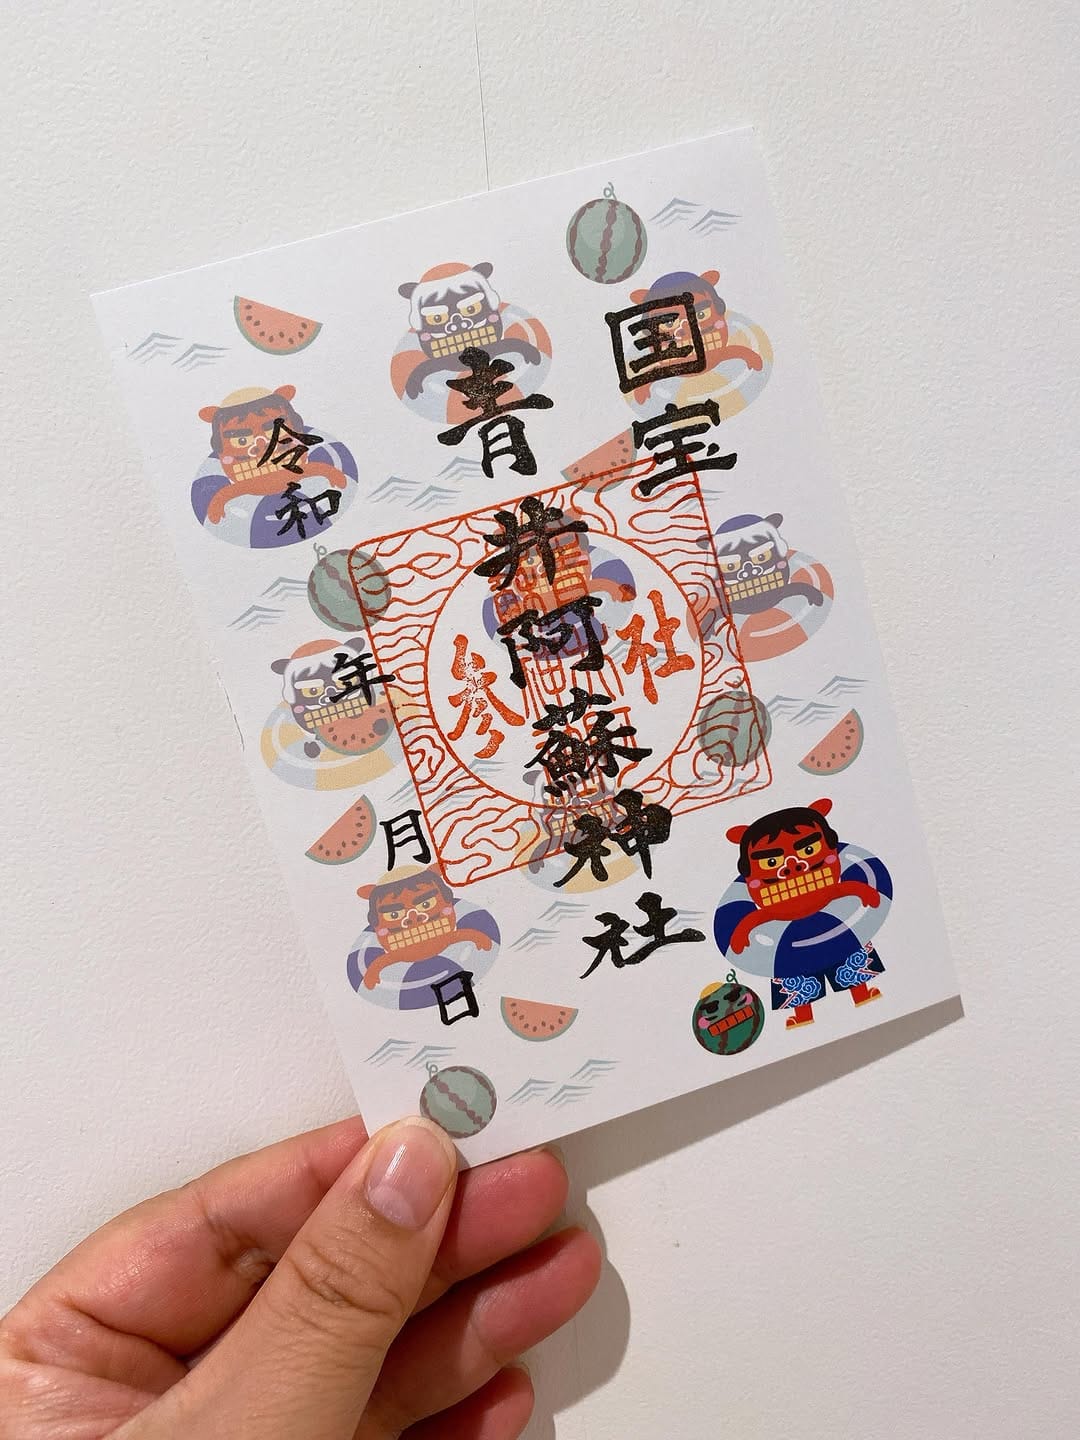 国宝
青井阿蘇神社
参社
令和 年 月 日